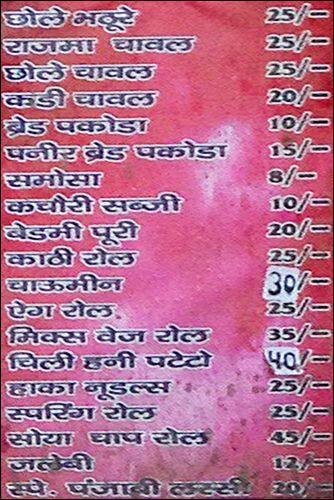 छोले भठूरे 25/-
राजमा चावल 25/-
छोले चावल 25/-
कडी चावल 20/-
ब्रेड पकोडा 10/-
पनीर ब्रेड पकोडा 15/-
समोसा 8/-
कचौरी सब्जी 10/-
बेडमी पूरी 20/-
काठी रोल 25/-
चाऊमीन 30/-
ऐग रोल 25/-
मिक्स वेज रोल 35/-
चिली हनी पटेटो 40/-
हाका नूडल्स 25/-
स्परिंग रोल 25/-
सोया चाप रोल 45/-
जलेबी 12/-
स्पे. पंजाबी लस्सी 20/-